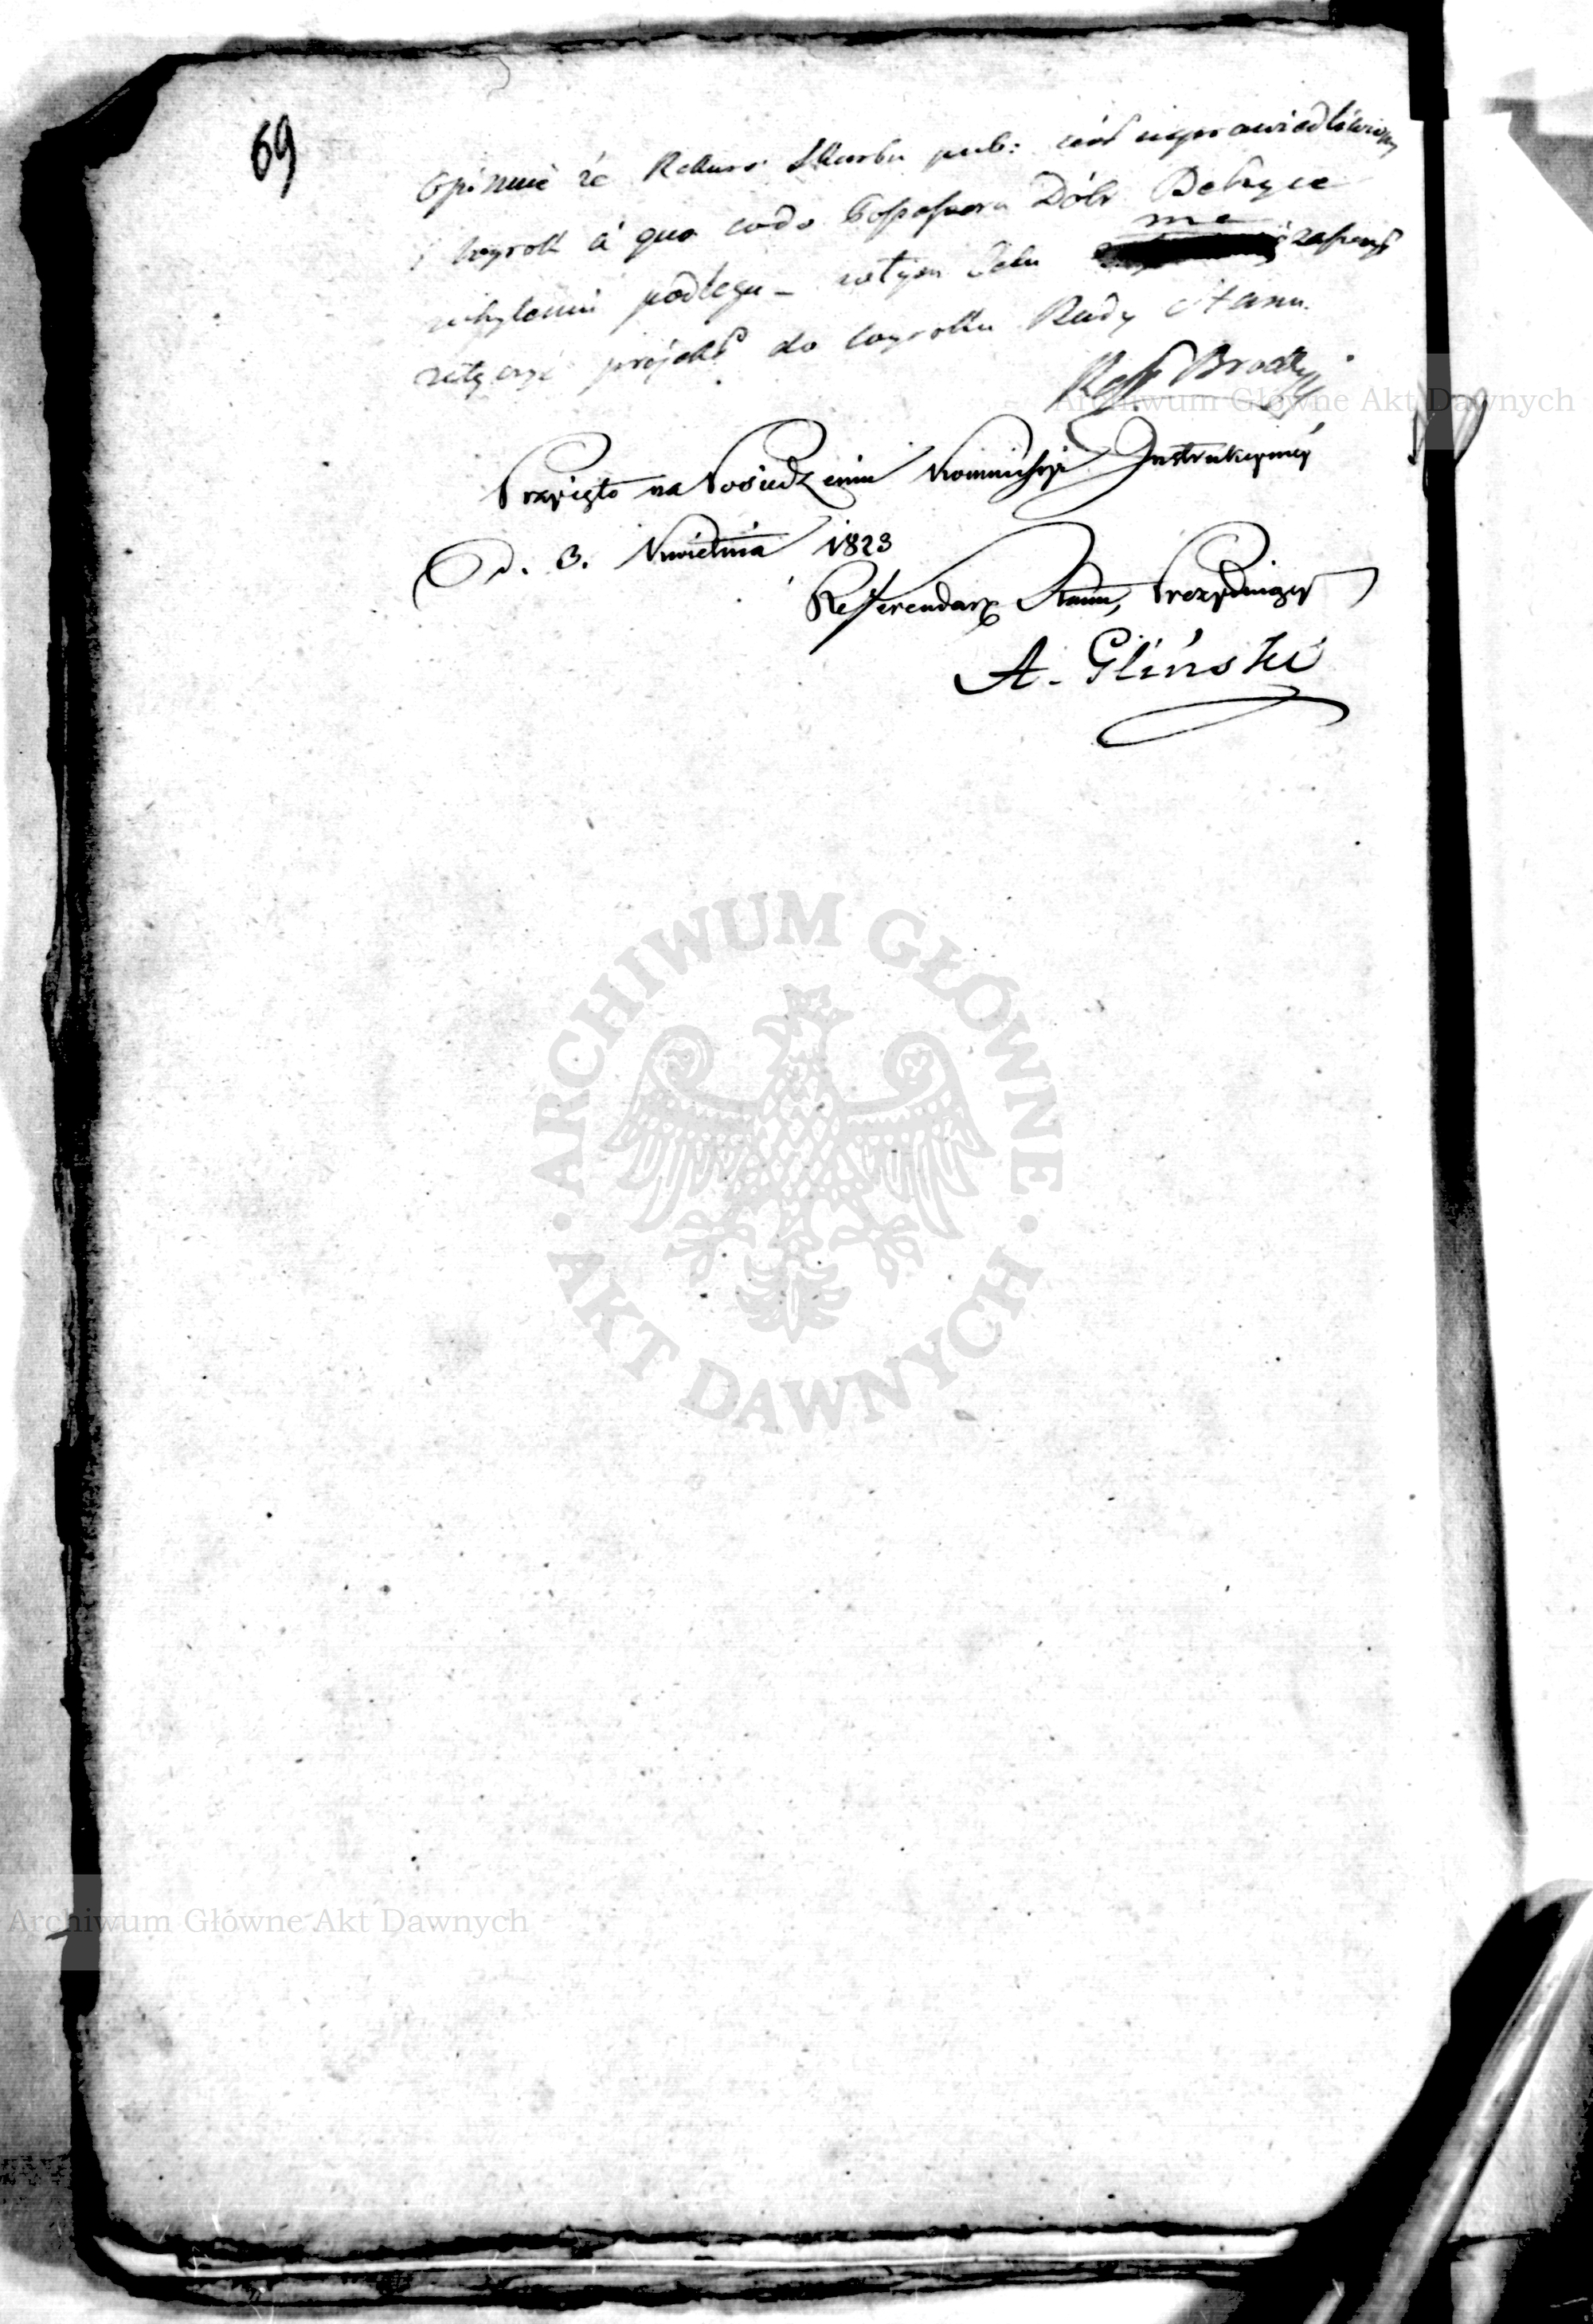 69
Opinuie że Rekurs Skarbu pub: iest usprawiedliwiony
i wyrok à quo codo Possessora Dóbr
uchyleniu podlega – wtym Celu ma zaszczyt
załączyć projekt do wyroku Rady Stanu.
Przyięto na Posiedzeniu Kommissyi Instrukcyiney
D. 3. Kwietnia 1823
Referendarz Stanu, Prezyduiący
A. Gliński
Archiwum Główne Akt Dawnych
ARCHIWUM GŁÓWNE
AKT DAWNYCH
Archiwum Główne Akt Dawnych